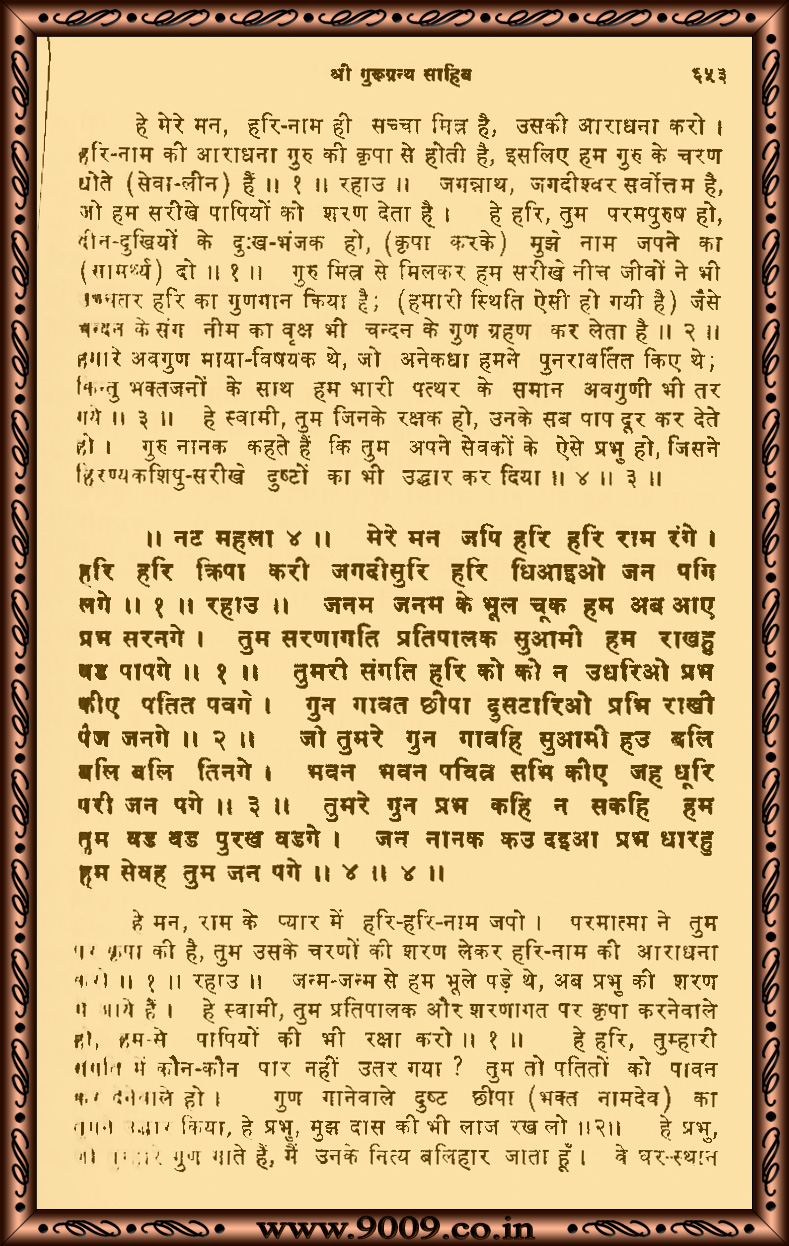 श्री गुरुग्रन्थ साहिब ६५३
हे मेरे मन, हरि-नाम ही सच्चा मित्र है, उसकी आराधना करो ।
हरि-नाम की आराधना गुरु की कृपा से होती है, इसलिए हम गुरु के चरण
धोते (सेवा-लीन) हैं ॥ १ ॥ रहाउ ॥ जगन्नाथ, जगदीश्वर सर्वोत्तम है,
जो हम सरीखे पापियों को शरण देता है । हे हरि, तुम परमपुरुष हो,
दीन-दुखियों के दुःख-भंजक हो, (कृपा करके) मुझे नाम जपने का
(सामर्थ्य) दो ॥ १ ॥ गुरु मित्र से मिलकर हम सरीखे नीच जीवों ने भी
हरि का गुणगान किया है; (हमारी स्थिति ऐसी हो गयी है) जैसे
चन्दन के संग नीम का वृक्ष भी चन्दन के गुण ग्रहण कर लेता है ॥ २ ॥
हमारे अवगुण माया-विषयक थे, जो अनेकधा हमने पुनरावर्तित किए थे;
किन्तु भक्तजनों के साथ हम भारी पत्थर के समान अवगुणी भी तर
गये ॥ ३ ॥ हे स्वामी, तुम जिनके रक्षक हो, उनके सब पाप दूर कर देते
हो । गुरु नानक कहते हैं कि तुम अपने सेवकों के ऐसे प्रभु हो, जिसने
हिरण्यकशिपु-सरीखे दुष्टों का भी उद्धार कर दिया ॥ ४ ॥ ३ ॥
॥ नट महला ४ ॥ मेरे मन जपि हरि हरि राम रंगे ।
हरि हरि क्रिपा करी जगदीसुरि हरि धिआइओ जन पगि
लगे ॥ १ ॥ रहाउ ॥ जनम जनम के भूल चूक हम अब आए
प्रभ सरनगे । तुम सरणागति प्रतिपालक सुआमी हम राखहु
वड पापगे ॥ १ ॥ तुमरी संगति हरि को को न उधरिओ प्रभ
कीए पतित पवगे । गुन गावत छीपा दुसटारिओ प्रभि राखी
पैज जनगे ॥ २ ॥ जो तुमरे गुन गावहि सुआमी हउ बलि
बलि बलि तिनगे । भवन भवन पवित्र सभि कीए जह धूरि
परी जन पगे ॥ ३ ॥ तुमरे गुन प्रभ कहि न सकहि हम
तुम वड वड पुरख वडगे । जन नानक कउ दइआ प्रभ धारहु
हम सेवह तुम जन पगे ॥ ४ ॥ ४ ॥
हे मन, राम के प्यार में हरि-हरि-नाम जपो । परमात्मा ने तुम
पर कृपा की है, तुम उसके चरणों की शरण लेकर हरि-नाम की आराधना
करो ॥ १ ॥ रहाउ ॥ जन्म-जन्म से हम भूले पड़े थे, अब प्रभु की शरण
में आये हैं । हे स्वामी, तुम प्रतिपालक और शरणागत पर कृपा करनेवाले
हो, हम-से पापियों की भी रक्षा करो ॥ १ ॥ हे हरि, तुम्हारी
संगति में कौन-कौन पार नहीं उतर गया ? तुम तो पतितों को पावन
कर देनेवाले हो । गुण गानेवाले दुष्ट छीपा (भक्त नामदेव) का
तुमने उद्धार किया, हे प्रभु, मुझ दास की भी लाज रख लो ॥२॥ हे प्रभु,
जो तुम्हारे गुण गाते हैं, मैं उनके नित्य बलिहार जाता हूँ । वे घर-स्थान
www.9009.co.in